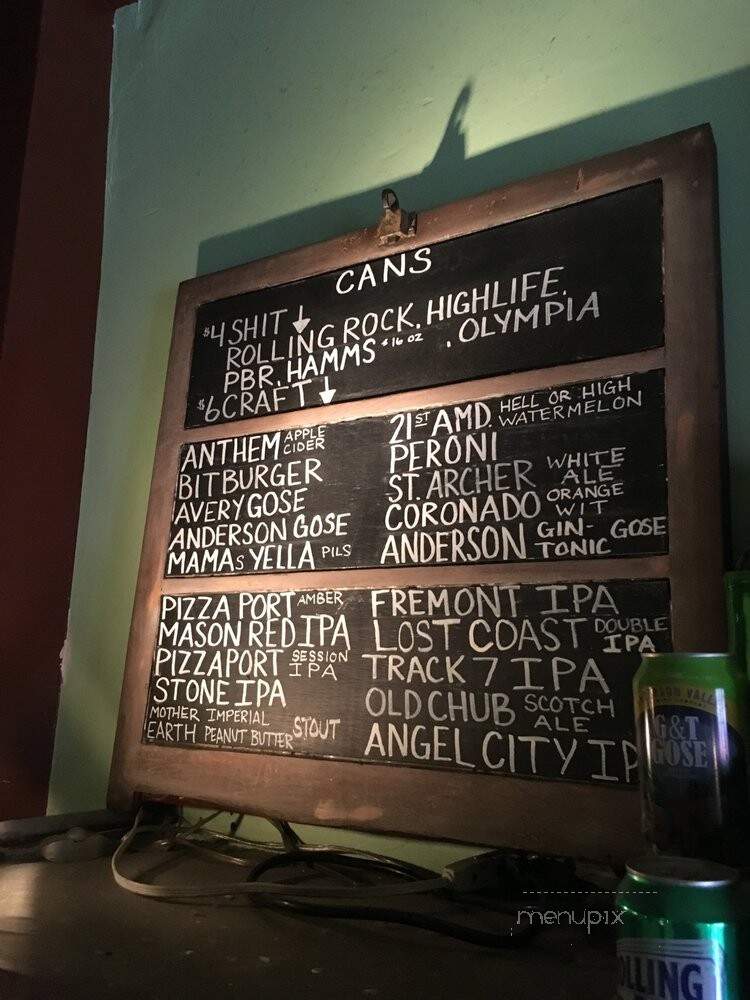 CANS
$4 SHIT ↓
ROLLING ROCK, HIGHLIFE,
PBR, HAMMS $16 OZ , OLYMPIA
$6 CRAFT ↓
ANTHEM APPLE CIDER
BITBURGER
AVERY GOSE
ANDERSON GOSE
MAMAS YELLA PILS
21ST AMD. HELL OR HIGH WATERMELON
PERONI
ST. ARCHER WHITE ALE
CORONADO ORANGE WIT
ANDERSON GIN-TONIC GOSE
PIZZA PORT AMBER
MASON RED IPA
PIZZA PORT SESSION IPA
STONE IPA
MOTHER EARTH IMPERIAL PEANUT BUTTER STOUT
FREMONT IPA
LOST COAST DOUBLE IPA
TRACK 7 IPA
OLD CHUB SCOTCH ALE
ANGEL CITY IP
G&T
GOSE
LLING
menupix